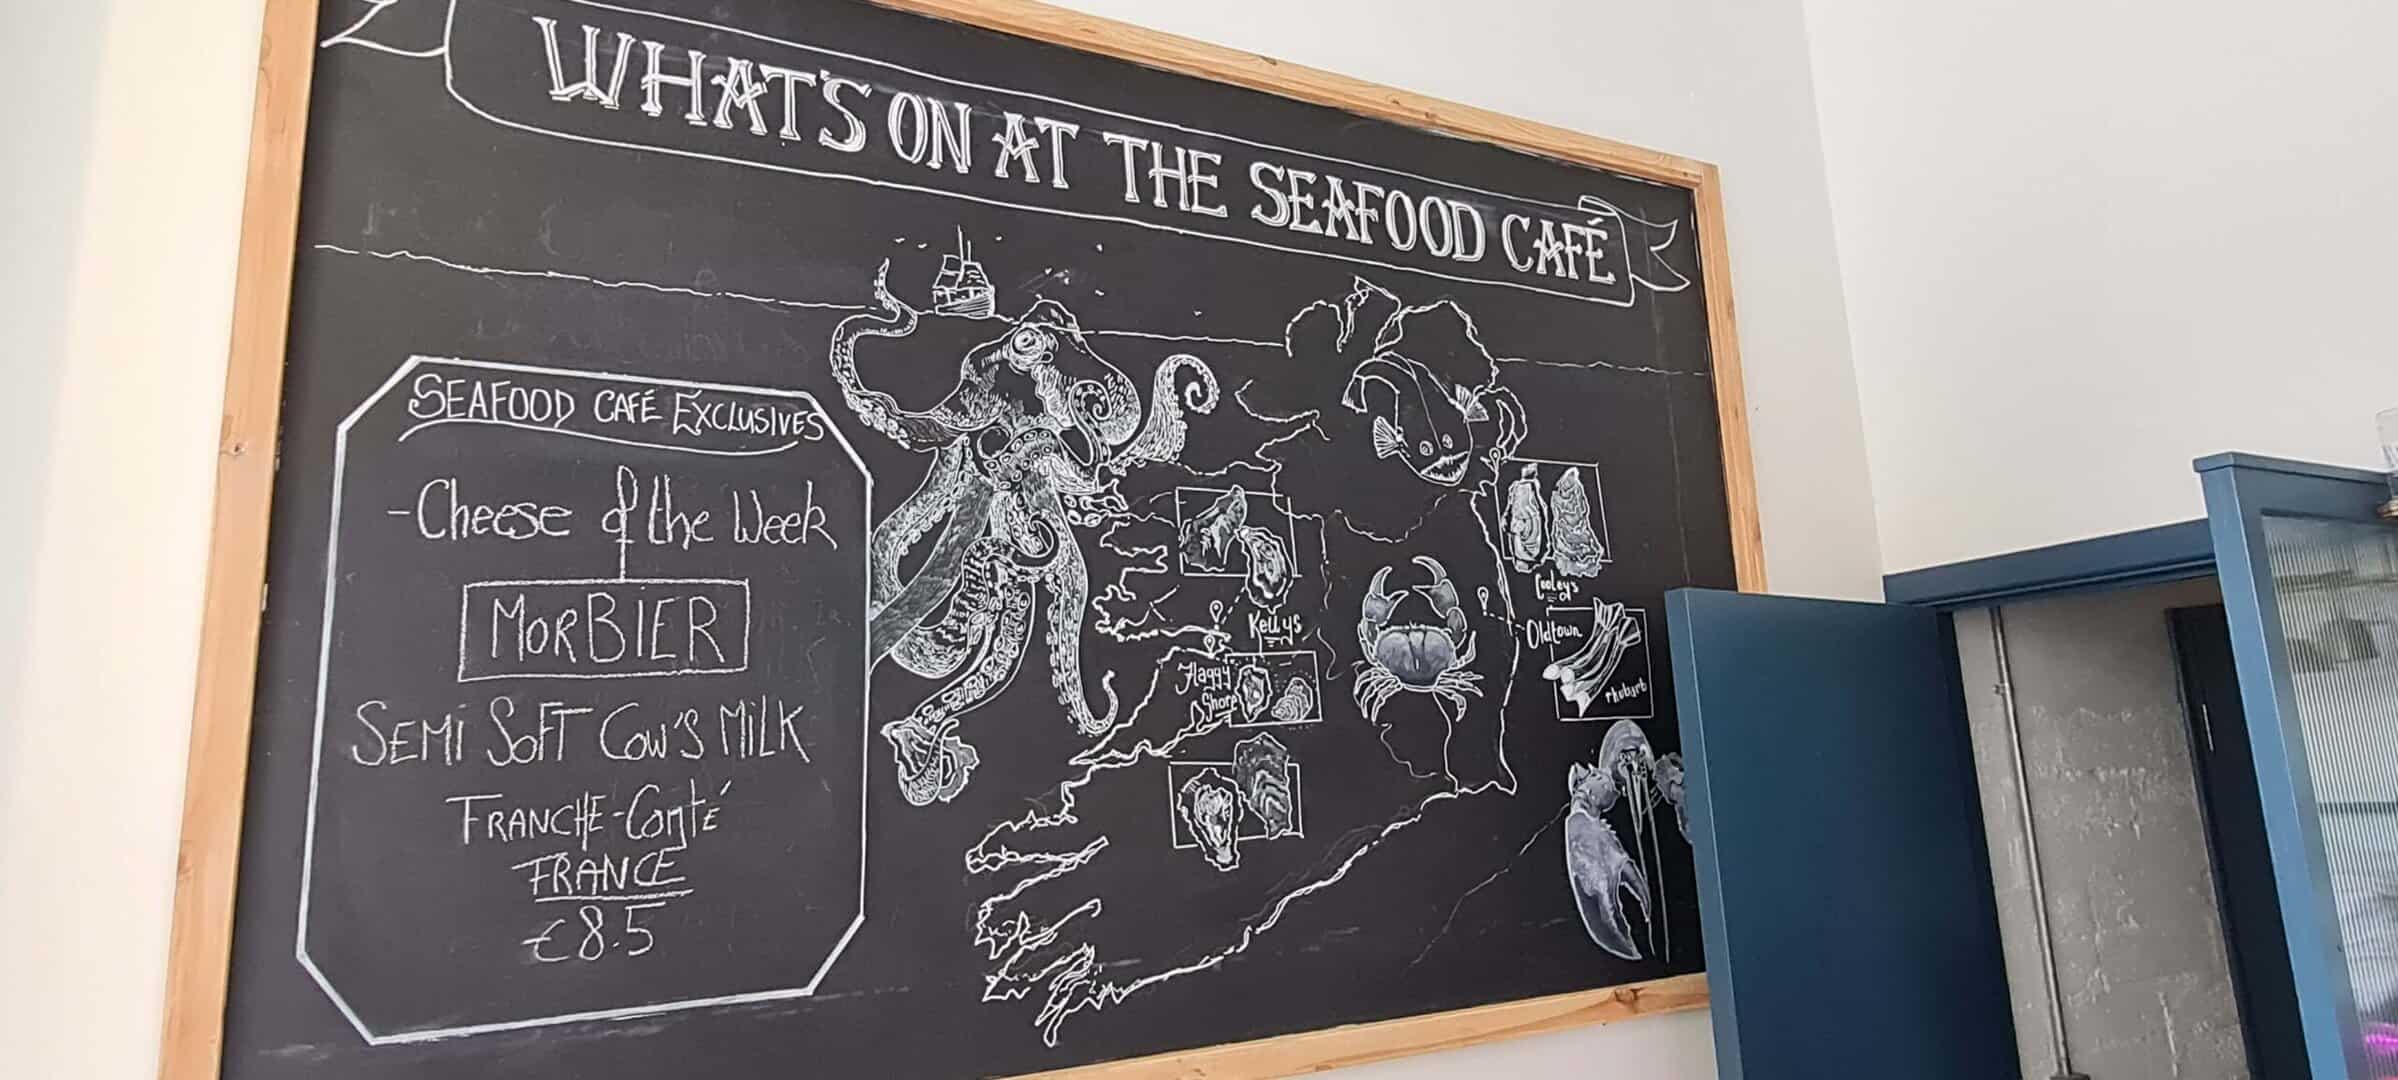 WHAT'S ON AT THE SEAFOOD CAFÉ
SEAFOOD CAFÉ EXCLUSIVES
-Cheese of the Week
MORBIER
SEMI SOFT COW'S MILK
FRANCHE-Comté
FRANCE
€8.5
Kellys
Flaggy
Shore
Cooley's
Oldtown
rhubarb